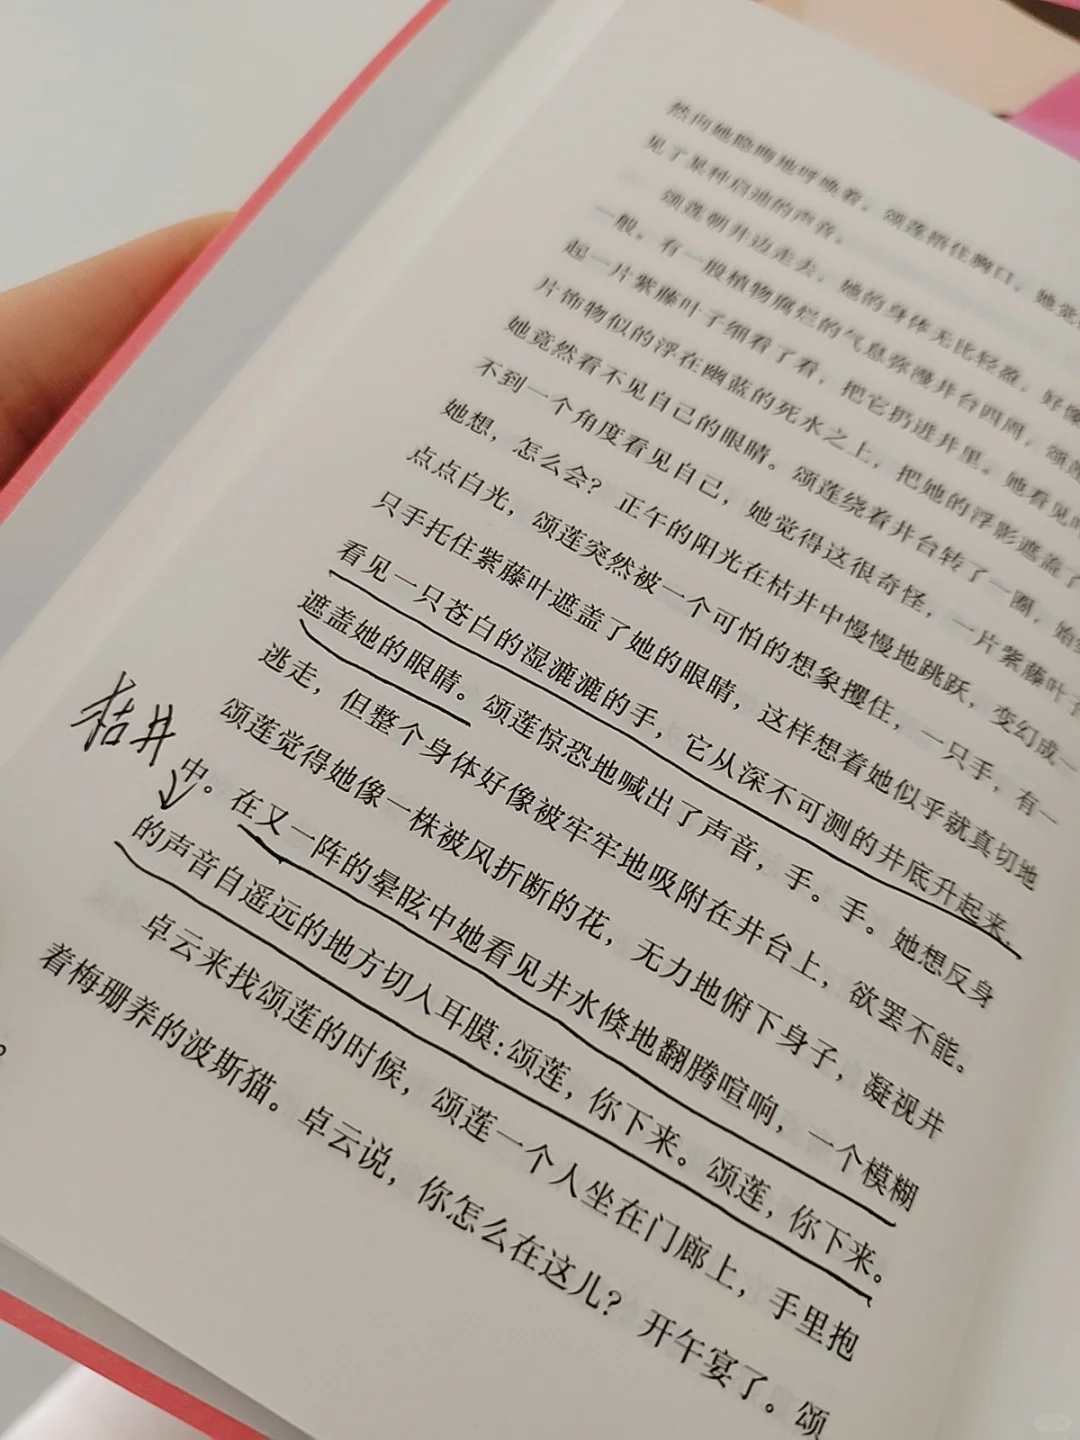 然向她隐晦地呼唤着。颂莲捂住胸口，她觉
见了某种启迪的声音。
颂莲朝井边走去，她的身体无比轻盈，好像
一般。有一股植物腐烂的气息弥漫井台四周，颂莲
起一片紫藤叶子细看了看，把它扔进井里。她看见叶
片饰物似的浮在幽蓝的死水之上，把她的浮影遮盖了
她竟然看不见自己的眼睛。颂莲绕着井台转了一圈，始
不到一个角度看见自己，她觉得这很奇怪，一片紫藤叶子
她想，怎么会？正午的阳光在枯井中慢慢地跳跃，变幻成一
点点白光，颂莲突然被一个可怕的想象攫住，一只手，有一
只手托住紫藤叶遮盖了她的眼睛，这样想着她似乎就真切地
看见一只苍白的湿漉漉的手，它从深不可测的井底升起来，
遮盖她的眼睛。颂莲惊恐地喊出了声音，手。手。她想反身
逃走，但整个身体好像被牢牢地吸附在井台上，欲罢不能。
颂莲觉得她像一株被风折断的花，无力地俯下身子，凝视井
枯井
中。在又一阵的晕眩中她看见井水倏地翻腾喧响，一个模糊
的声音自遥远的地方切入耳膜：颂莲，你下来。颂莲，你下来。
卓云来找颂莲的时候，颂莲一个人坐在门廊上，手里抱
着梅珊养的波斯猫。卓云说，你怎么在这儿？开午宴了。颂